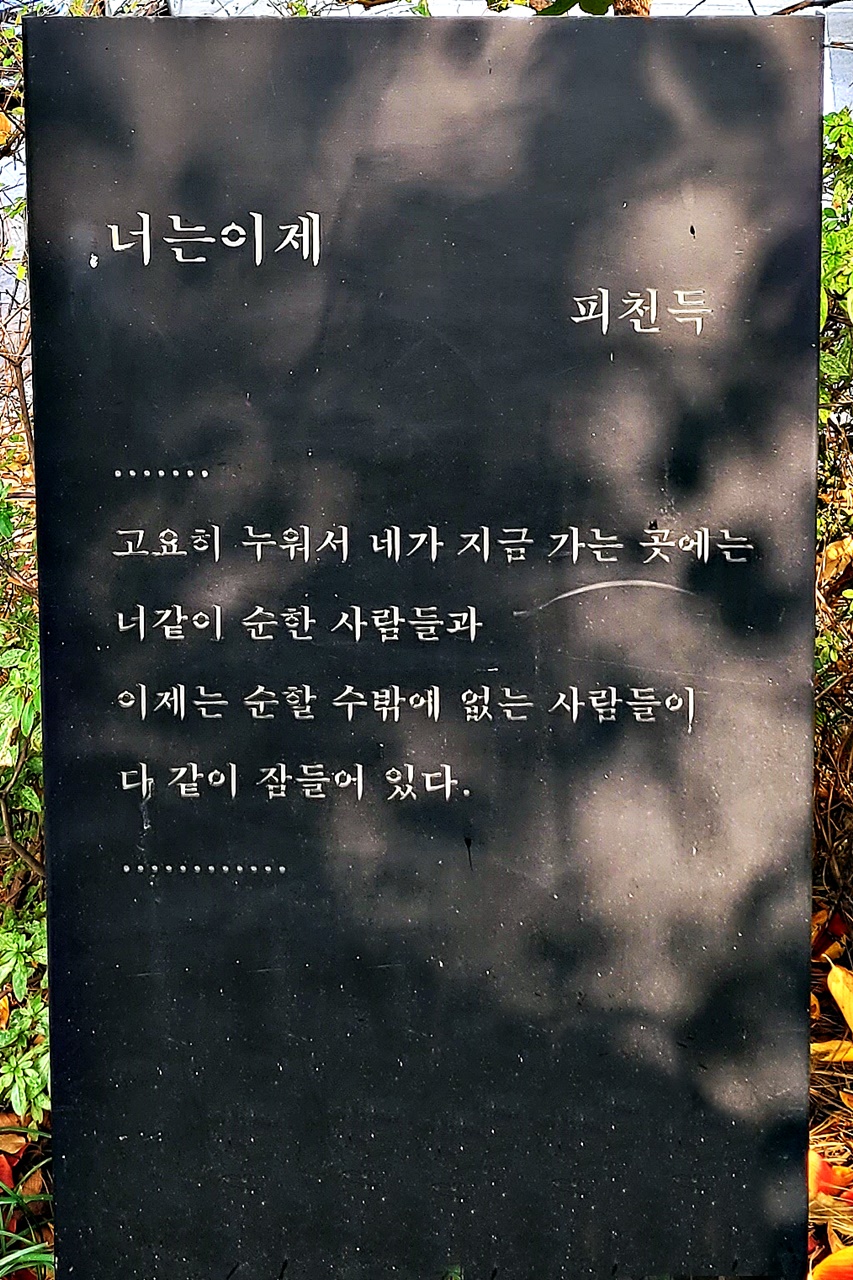 너는이제
피천득
.......
고요히 누워서 네가 지금 가는 곳에는
너같이 순한 사람들과
이제는 순할 수밖에 없는 사람들이
다 같이 잠들어 있다.
............